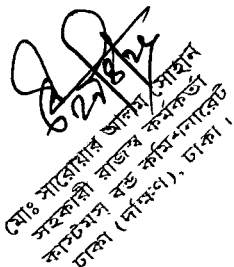 ২৭/৪/২৫
মোঃ সারোয়ার আলম সোহান
সহকারী রাজস্ব কর্মকর্তা
কাস্টমস্ বন্ড কমিশনারেট
ঢাকা (দক্ষিণ), ঢাকা।